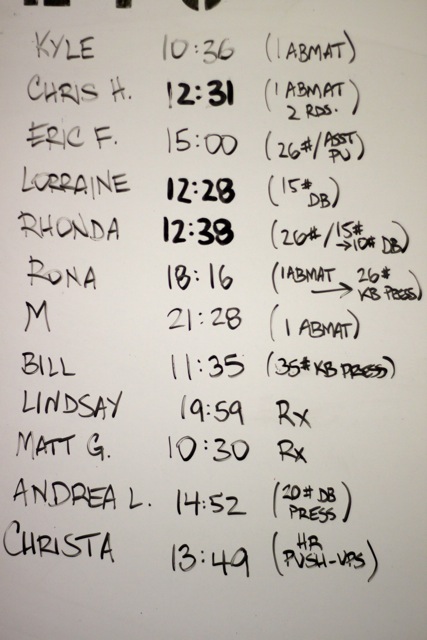 KYLE 10:36 (1 ABMAT)
CHRIS H. 12:31 (1 ABMAT
2 RDS.)
ERIC F. 15:00 (26#/ASST
PU)
LORRAINE 12:28 (15#
DB)
RHONDA 12:38 (26#/15#
→10# DB)
RONA 18:16 (1 ABMAT → 26#
KB PRESS)
M 21:28 (1 ABMAT)
BILL 11:35 (35# KB PRESS)
LINDSAY 19:59 Rx
MATT G. 10:30 Rx
ANDREA L. 14:52 (20# DB
PRESS)
CHRISTA 13:49 (HR
PUSH-UPS)